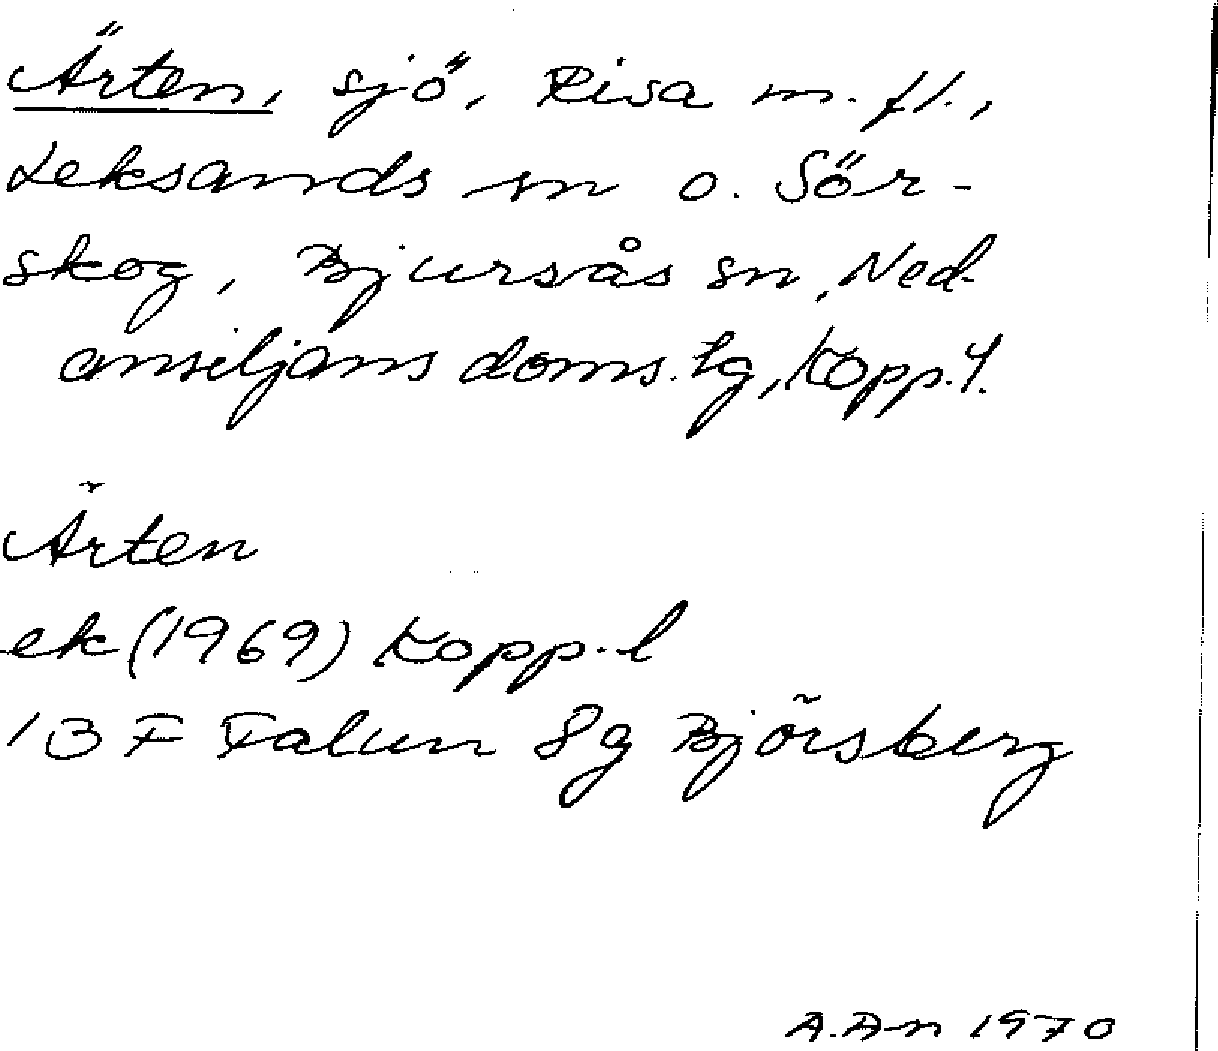 Ärten, sjö, Risa m. fl.,
Leksands sn o. Sör-
skog, Bjursås sn, Ned-
ansiljans doms. lg, Kopp. l.
Ärten
ek (1969) Kopp. l
13 F Falun 8g Björsberg
A. An 1970